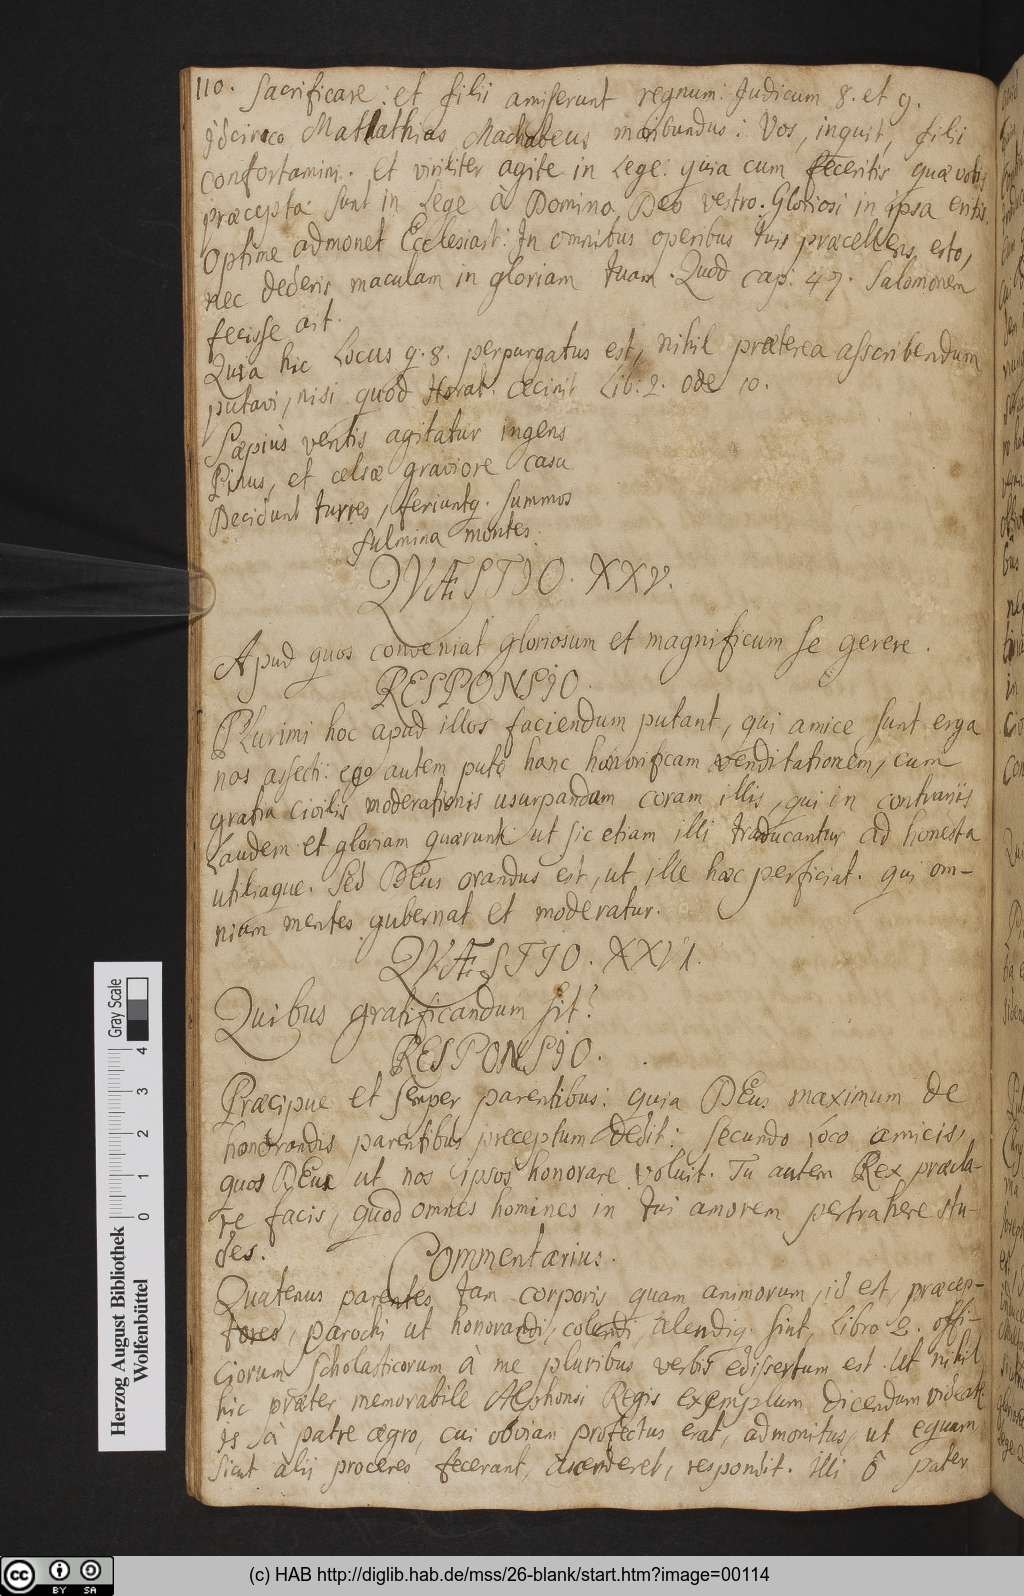 110. Sacrificare: et filii amiserunt regnum: Judicum 8. et 9.
Idcirco Mattathias Machabeus moribundus: Vos, inquit, filii
confortamini. et viriliter agite in Lege: quia cum feceritis quæ vobis
præcepta sunt in Lege à Domino Deo vestro. Gloriosi in ipsa eritis.
Optime admonet Ecclesiast: In omnibus operibus tuis præcellens esto,
nec dederis maculam in gloriam tuam. Quod cap: 47. Salomonem
fecisse ait.
Quia hic Locus q. 8. perpurgatus est, nihil præterea asscribendum
putavi, nisi quod Horat. cecinit Lib: 2. ode 10.
Sæpius ventis agitatur ingens
Pinus, et celsæ graviore casu
Decidunt turres, feriuntq. summos
fulmina montes.
QVÆSTIO. XXV.
Apud quos conveniat gloriosum et magnificum se gerere.
RESPONSIO.
Plurimi hoc apud illos faciendum putant, qui amice sunt erga
nos affecti: ego autem puto hanc honorificam venditationem, cum
gratia civilis moderationis usurpandam coram illis, qui in contrariis
Laudem et gloriam quærunt: ut sic etiam illi traducantur ad honesta
utiliaque. Sed DEus orandus est, ut ille hæc perficiat. qui om-
nium mentes gubernat et moderatur.
QVÆSTIO. XXVI.
Quibus gratificandum sit?
RESPONSIO.
Præcipue et semper parentibus: quia DEus maximum de
honorandis parentibus preceptum dedit: secundo loco amicis,
quos DEus ut nos ipsos honorare voluit. Tu autem Rex præcla-
re facis, quod omnes homines in tui amorem pertrahere stu-
des.
Commentarius.
Quatenus parentes tam corporis quam animorum id est, præcep-
tores, parochi ut honorandi, colendi, alendiq. sint, Libro 2. offi-
ciorum scholasticorum à me pluribus verbis edissertum est. Ut nihil
hic præter memorabile Alphonsi Regis exemplum dicendum videat.
is à patre ægro, cui obviam profectus erat, admonitus, ut equum
sicut alii proceres fecerant, ascenderet, respondit. Illi ô pater
Herzog August Bibliothek
Wolfenbüttel
0 1 2 3 4
Gray Scale
cc BY SA
(c) HAB http://diglib.hab.de/mss/26-blank/start.htm?image=00114